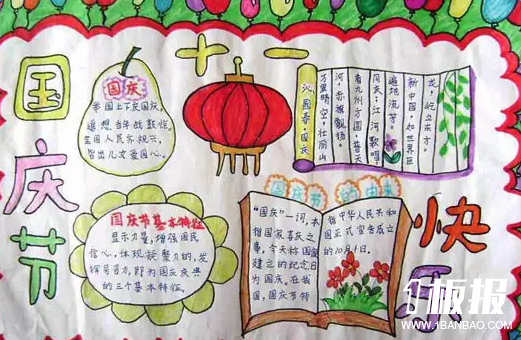 国庆节
十一
快乐
国庆
举国上下庆国庆,
遥想当年战鼓惊。
全国人民齐祝云,
皆出儿女爱国心。
沁园春·国庆
万里晴空,壮丽山
河,赤旗飘扬。
看九州方圆,普天
同庆;江河歌唱
遍地流芳。
新中国,如世巨
龙,屹立东方。
国庆节基本特征
显示力量,增强国民
信心,体现凝聚力的,发
挥号召力,即为国庆庆典
的三个基本特征。
国庆节的由来
“国庆”一词,本
指国家喜庆之
事,今天称国家
建立的纪念日
为国庆。在我
国,国庆节特
指中华人民共和
国正式宣告成立
的10月1日。
板报
WWW.1BANBAO.COM